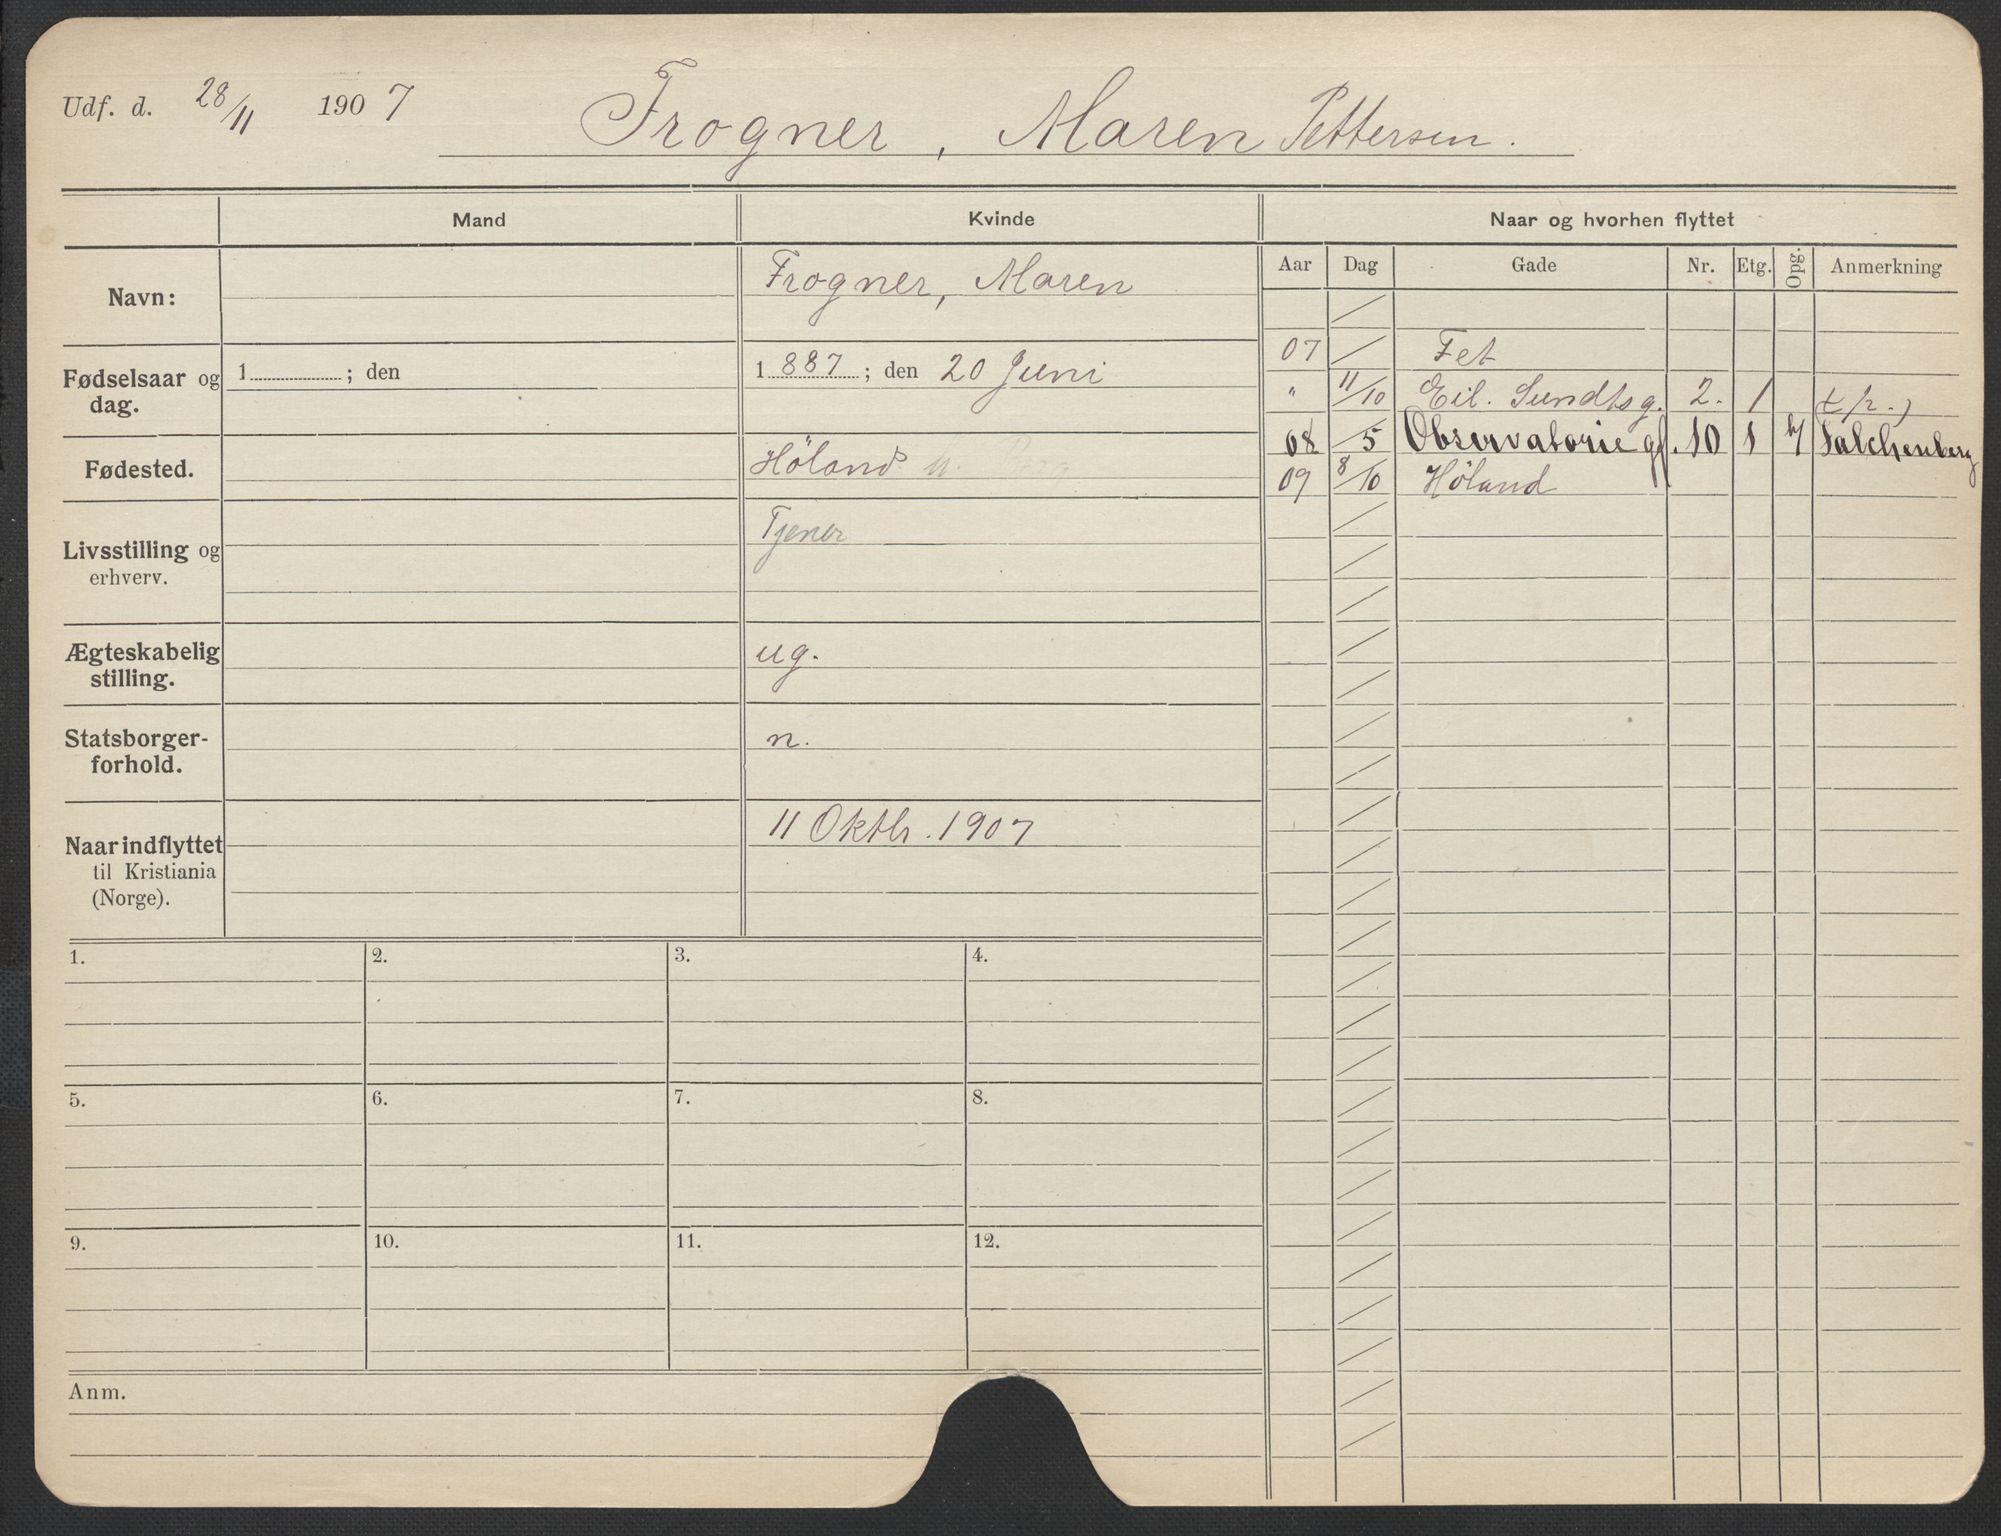 Udf. d. 28/11 1907 Frogner, Maren Pettersen.
Mand Kvinde Naar og hvorhen flyttet
Aar Dag Gade Nr. Etg. Opg. Anmerkning
Navn: Frogner, Maren
Fødselsaar og dag. 1 ; den 1887 ; den 20 Juni
Fødested. Höland
Livsstilling og erhverv. Tjener
Ægteskabelig stilling. ug.
Statsborger-forhold. n.
Naar indflyttet til Kristiania (Norge). 11 Oktbr. 1907
07 / Fet
" 11/10 Eil. Sundtsg. 2. 1
08 /5 Observatorie g. 10 1 Falchenberg
09 8/10 Höland
1. 2. 3. 4.
5. 6. 7. 8.
9. 10. 11. 12.
Anm.